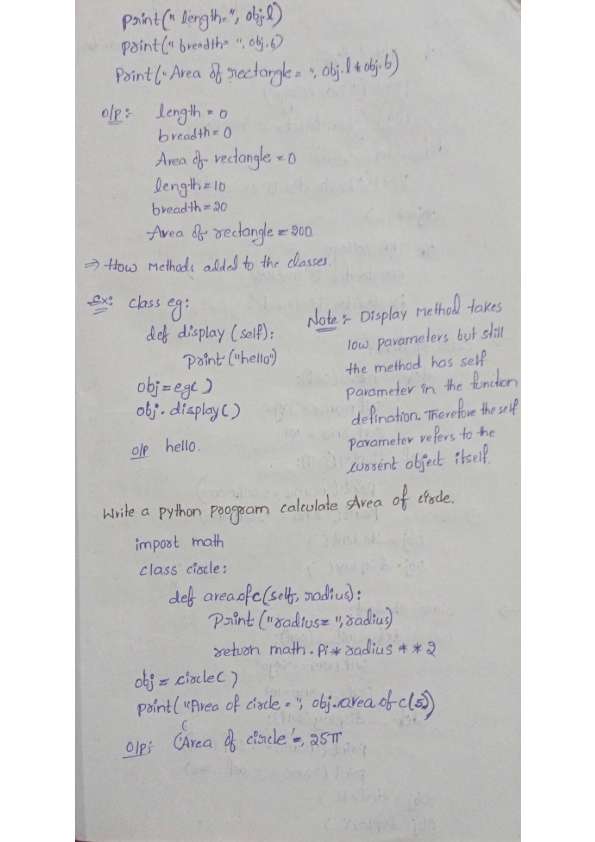 print(" length=", obj.l)
print(" breadth= ", obj.b)
Print(" Area of rectangle = ", obj.l * obj.b)
o/p:- length = 0
breadth = 0
Area of rectangle = 0
length = 10
breadth = 20
Area of rectangle = 200
⇒ How Methods added to the classes.
Ex: class eg:
def display (self):
Print ("hello")
obj = eg( )
obj. display( )
o/p hello.
Note :- Display Method takes
low parameters but still
the method has self
parameter in the function
defination. Therefore the self
parameter refers to the
current object itself.
Write a python program calculate Area of circle.
import math
class circle:
def areaofc(self, radius):
Print ("radius= ", radius)
return math. Pi * radius * * 2
obj = circle( )
print( "Area of circle = ", obj.area of c(5))
o/p: (Area of circle =, 25π